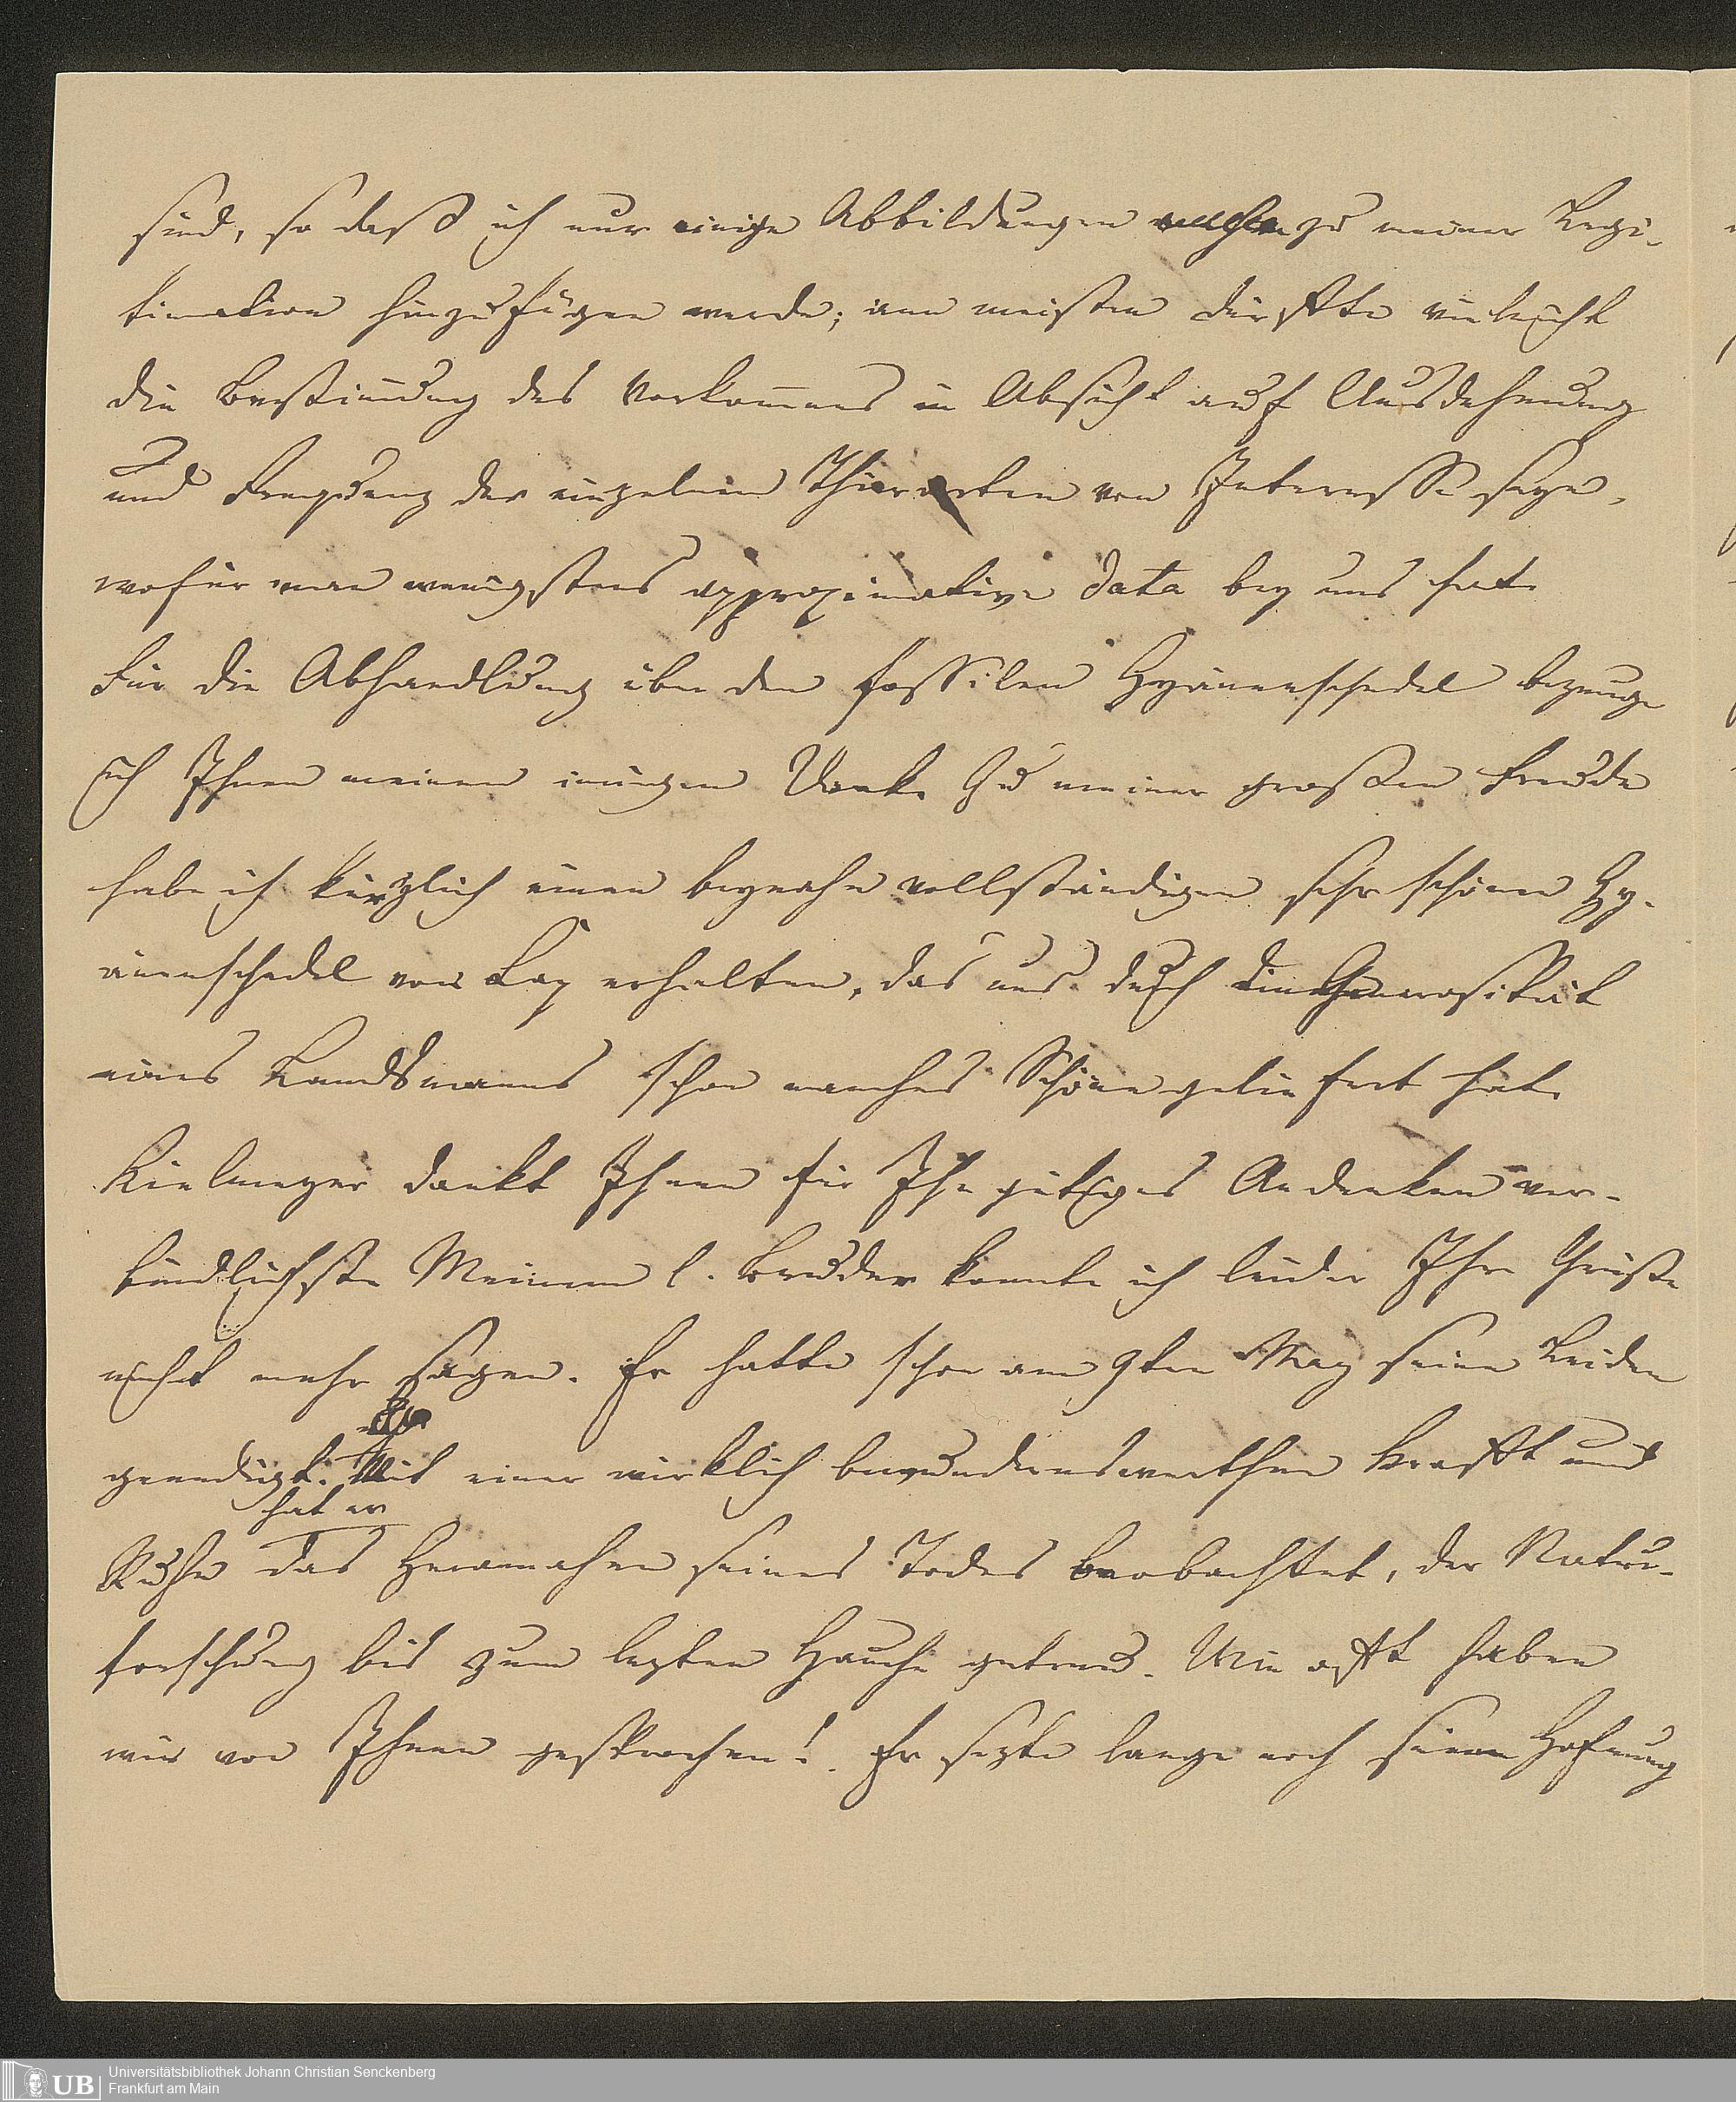 sind, so daß ich nur einige Abbildungen zu meiner Legi-
timation hinzufügen werde; am meisten dürffte vieleicht
die Bestim̄ung des Vorkom̄ens in Absicht auf Ausdehnung
und Frequenz der einzelnen Thierarten von Interesse seyn,
wofür man wenigstens approximative data bey uns hat.
Für die Abhandlung über den fossilen Hyänenschedel bezeuge
ich Ihnen meinen innigen Dank. Zu meiner großen Freude
habe ich kürzlich einen beynahe vollständigen sehr schönen Hy-
änenschedel von Cap erhalten, das uns durch die Generositæt
eines Landsmanns schon manches Schöne geliefert hat.
Kielmeyer dankt Ihnen für Ihr gütiges Andenken ver-
bindlichste Meinem l. Bruder konnte ich leider Ihre Grüße
nicht mehr sagen. Er hatte schon am 9ten May seine Leiden
geendigt. Mit einer wirklich bewundernswerthen Krafft und
hat er
Ruhe das Herannahen seines Todes beobachtet, der Natur-
forschung bis zum lezten Hauche getreu. Wie offt haben
wir von Ihnen gesprochen! Er sezte lange noch seine Hofnung
Universitätsbibliothek Johann Christian Senckenberg
UB
Frankfurt am Main